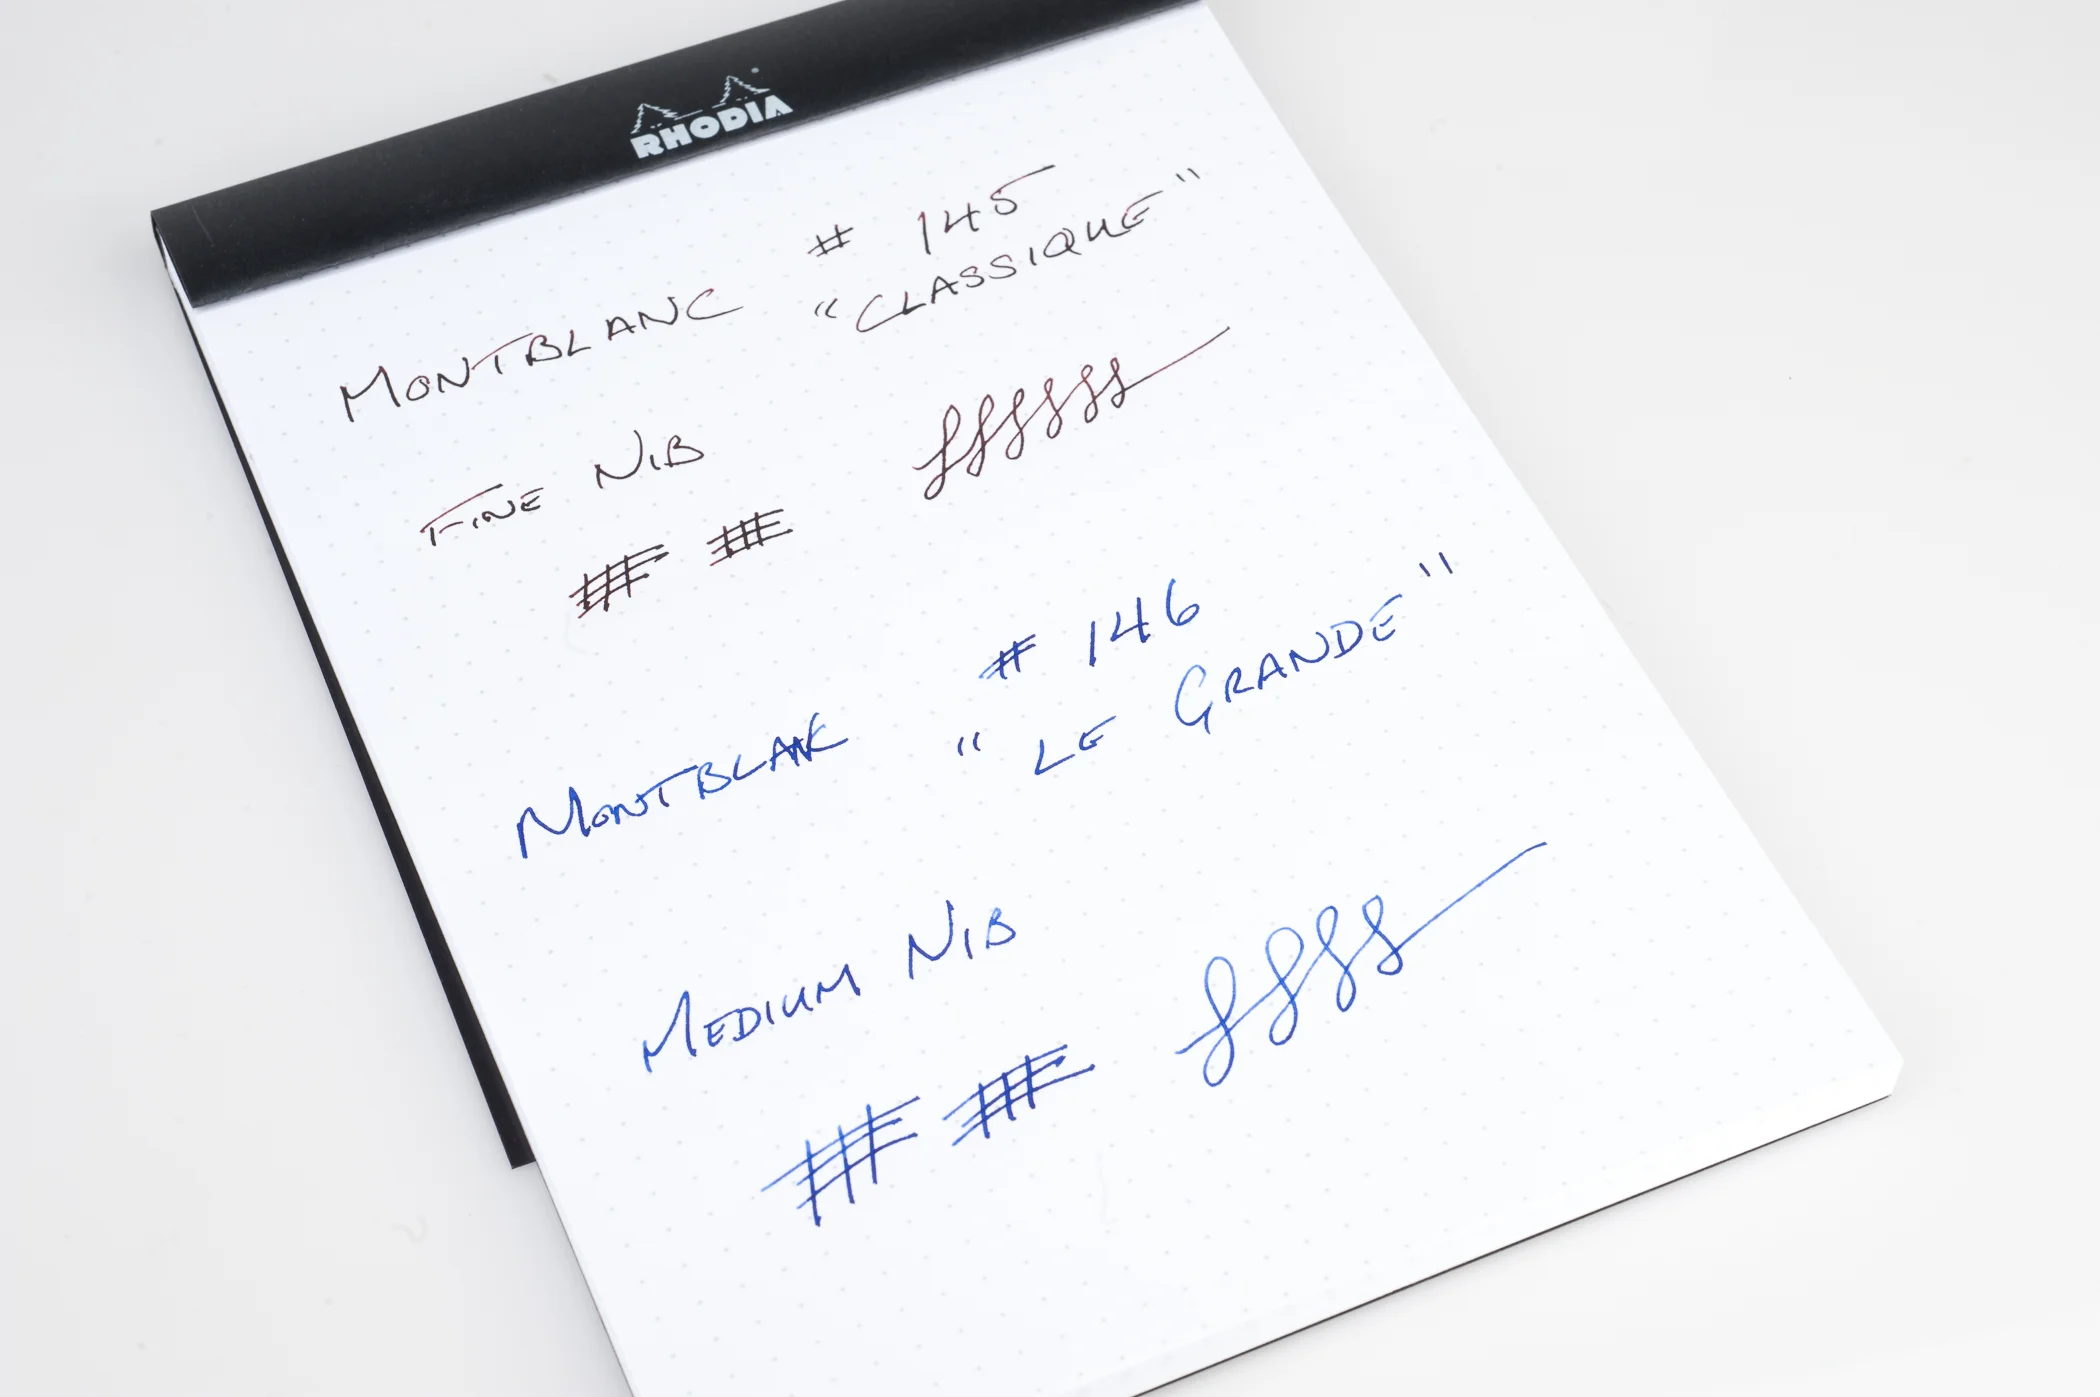 RHODIA
MONTBLANC # 145
"CLASSIQUE"
FINE NIB
MONTBLANC # 146
"LE GRANDE"
MEDIUM NIB